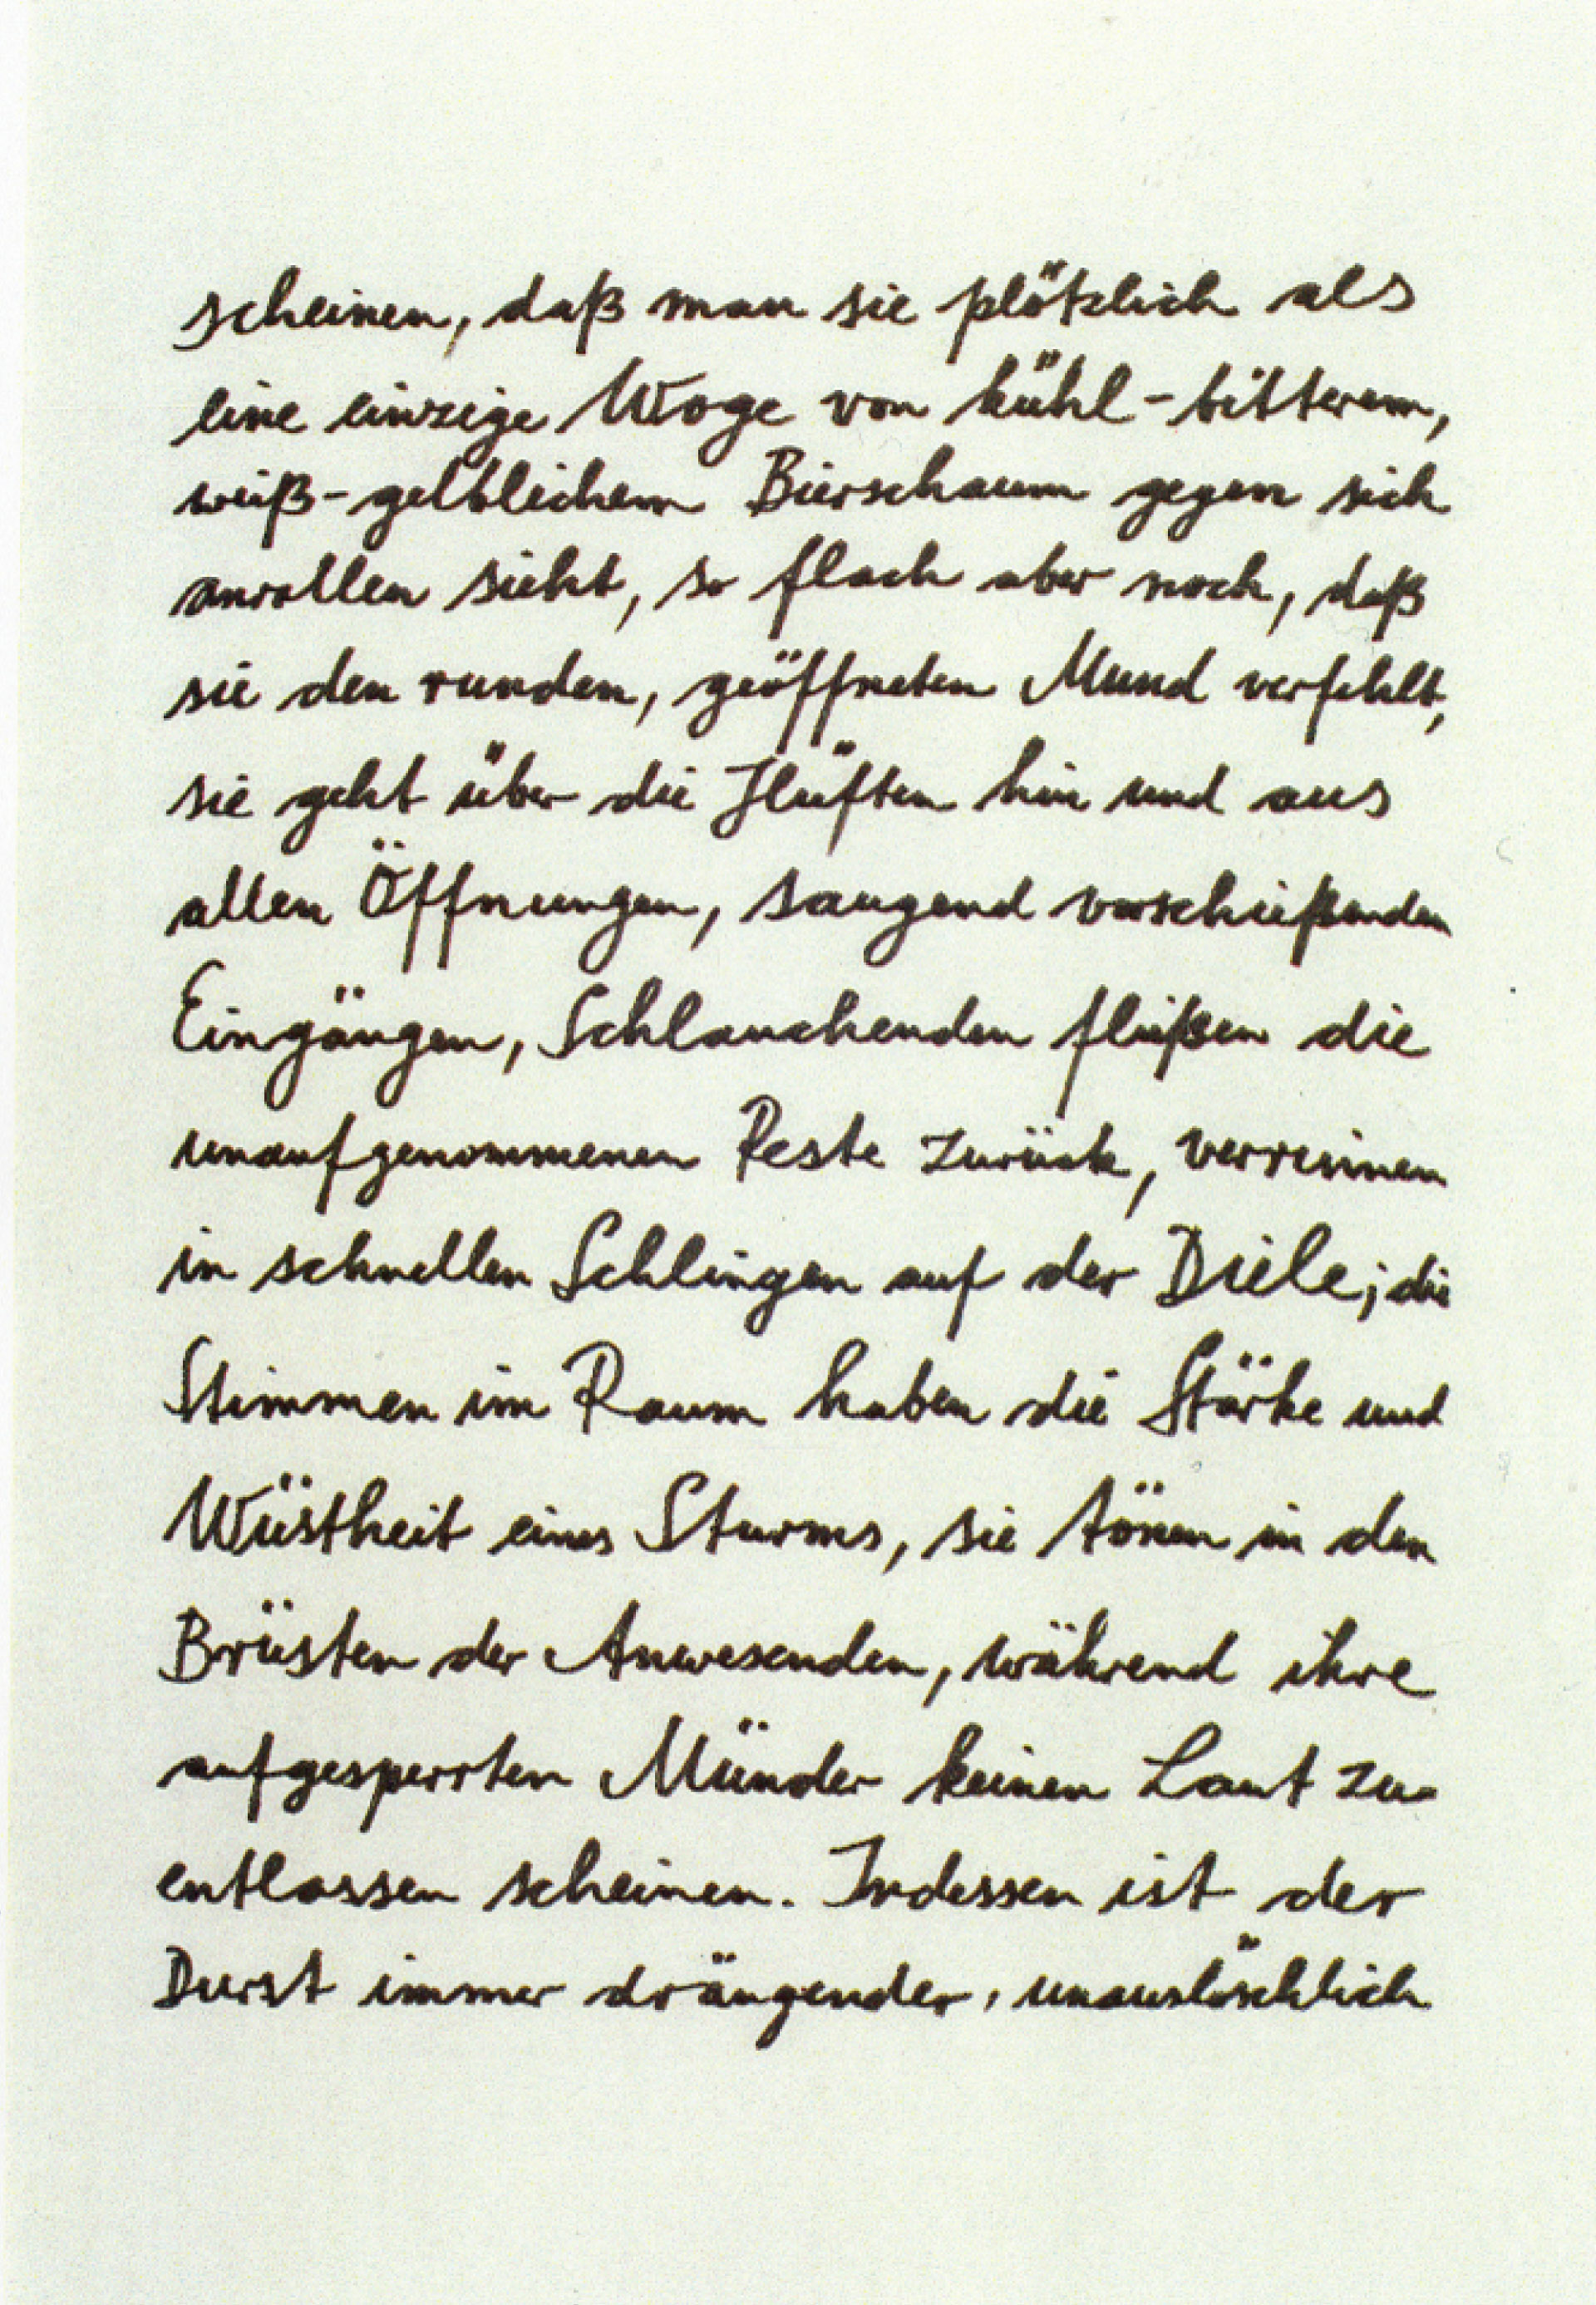 scheinen, daß man sie plötzlich als
eine einzige Woge von kühl-bitterem,
weiß-gelblichem Bierschaum gegen sich
anrollen sieht, so flach aber noch, daß
sie den runden, geöffneten Mund verfehlt,
sie geht über die Hüften hin und aus
allen Öffnungen, saugend vorschießenden
Eingängen, Schlauchenden fließen die
unaufgenommenen Reste zurück, verrinnen
in schnellen Schlingen auf der Diele; die
Stimmen im Raum haben die Stärke und
Wüstheit eines Sturms, sie tönen in den
Brüsten der Anwesenden, während ihre
aufgesperrten Münder keinen Laut zu
entlassen scheinen. Indessen ist der
Durst immer drängender, unauslöschlich